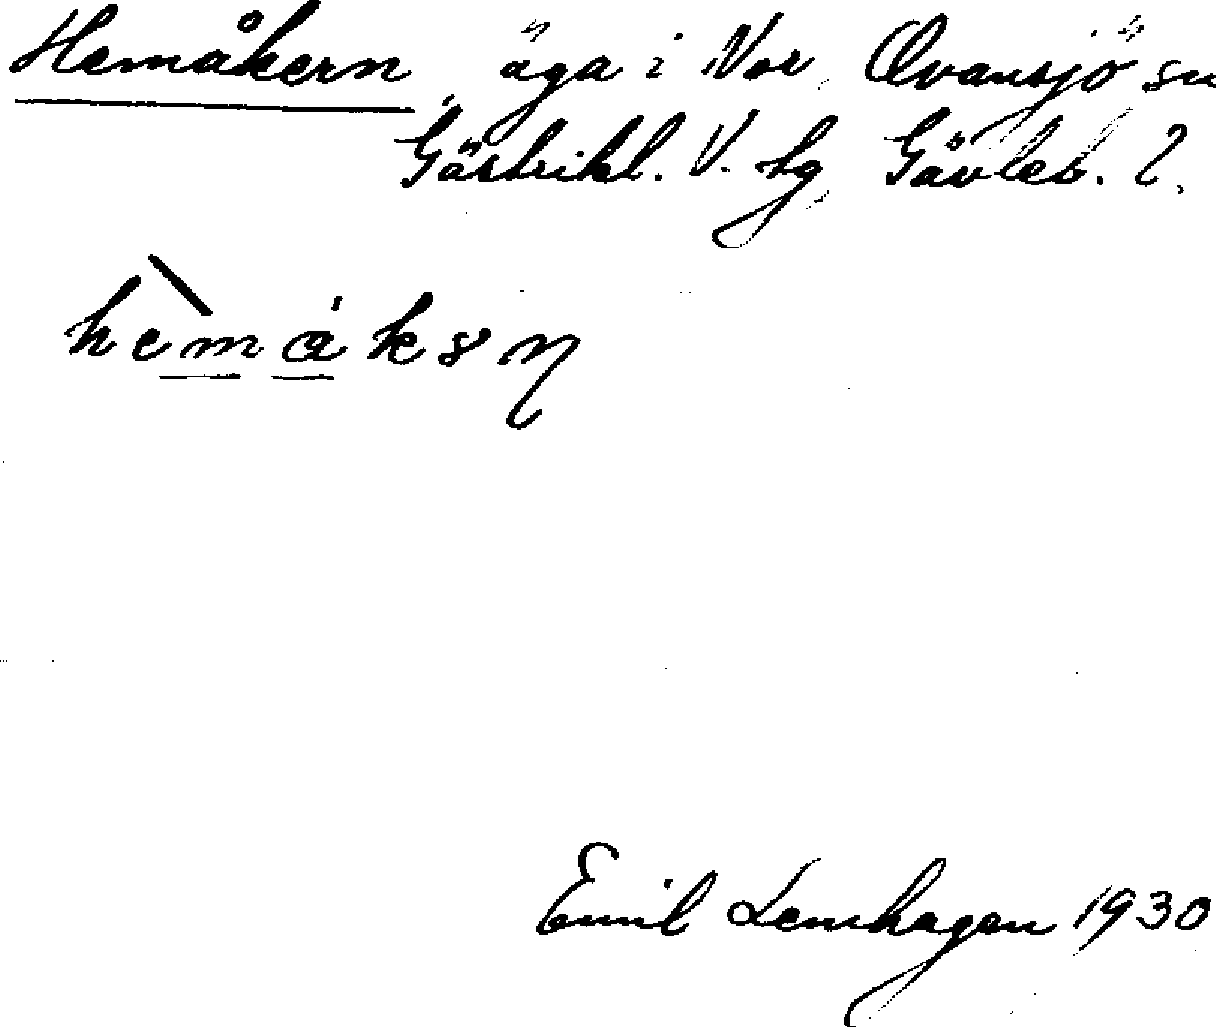 Hemåkern, äga i Nor, Ovansjö sn
Gästrikl. V. tg, Gävleb. l.
Emil Lenhagen 1930